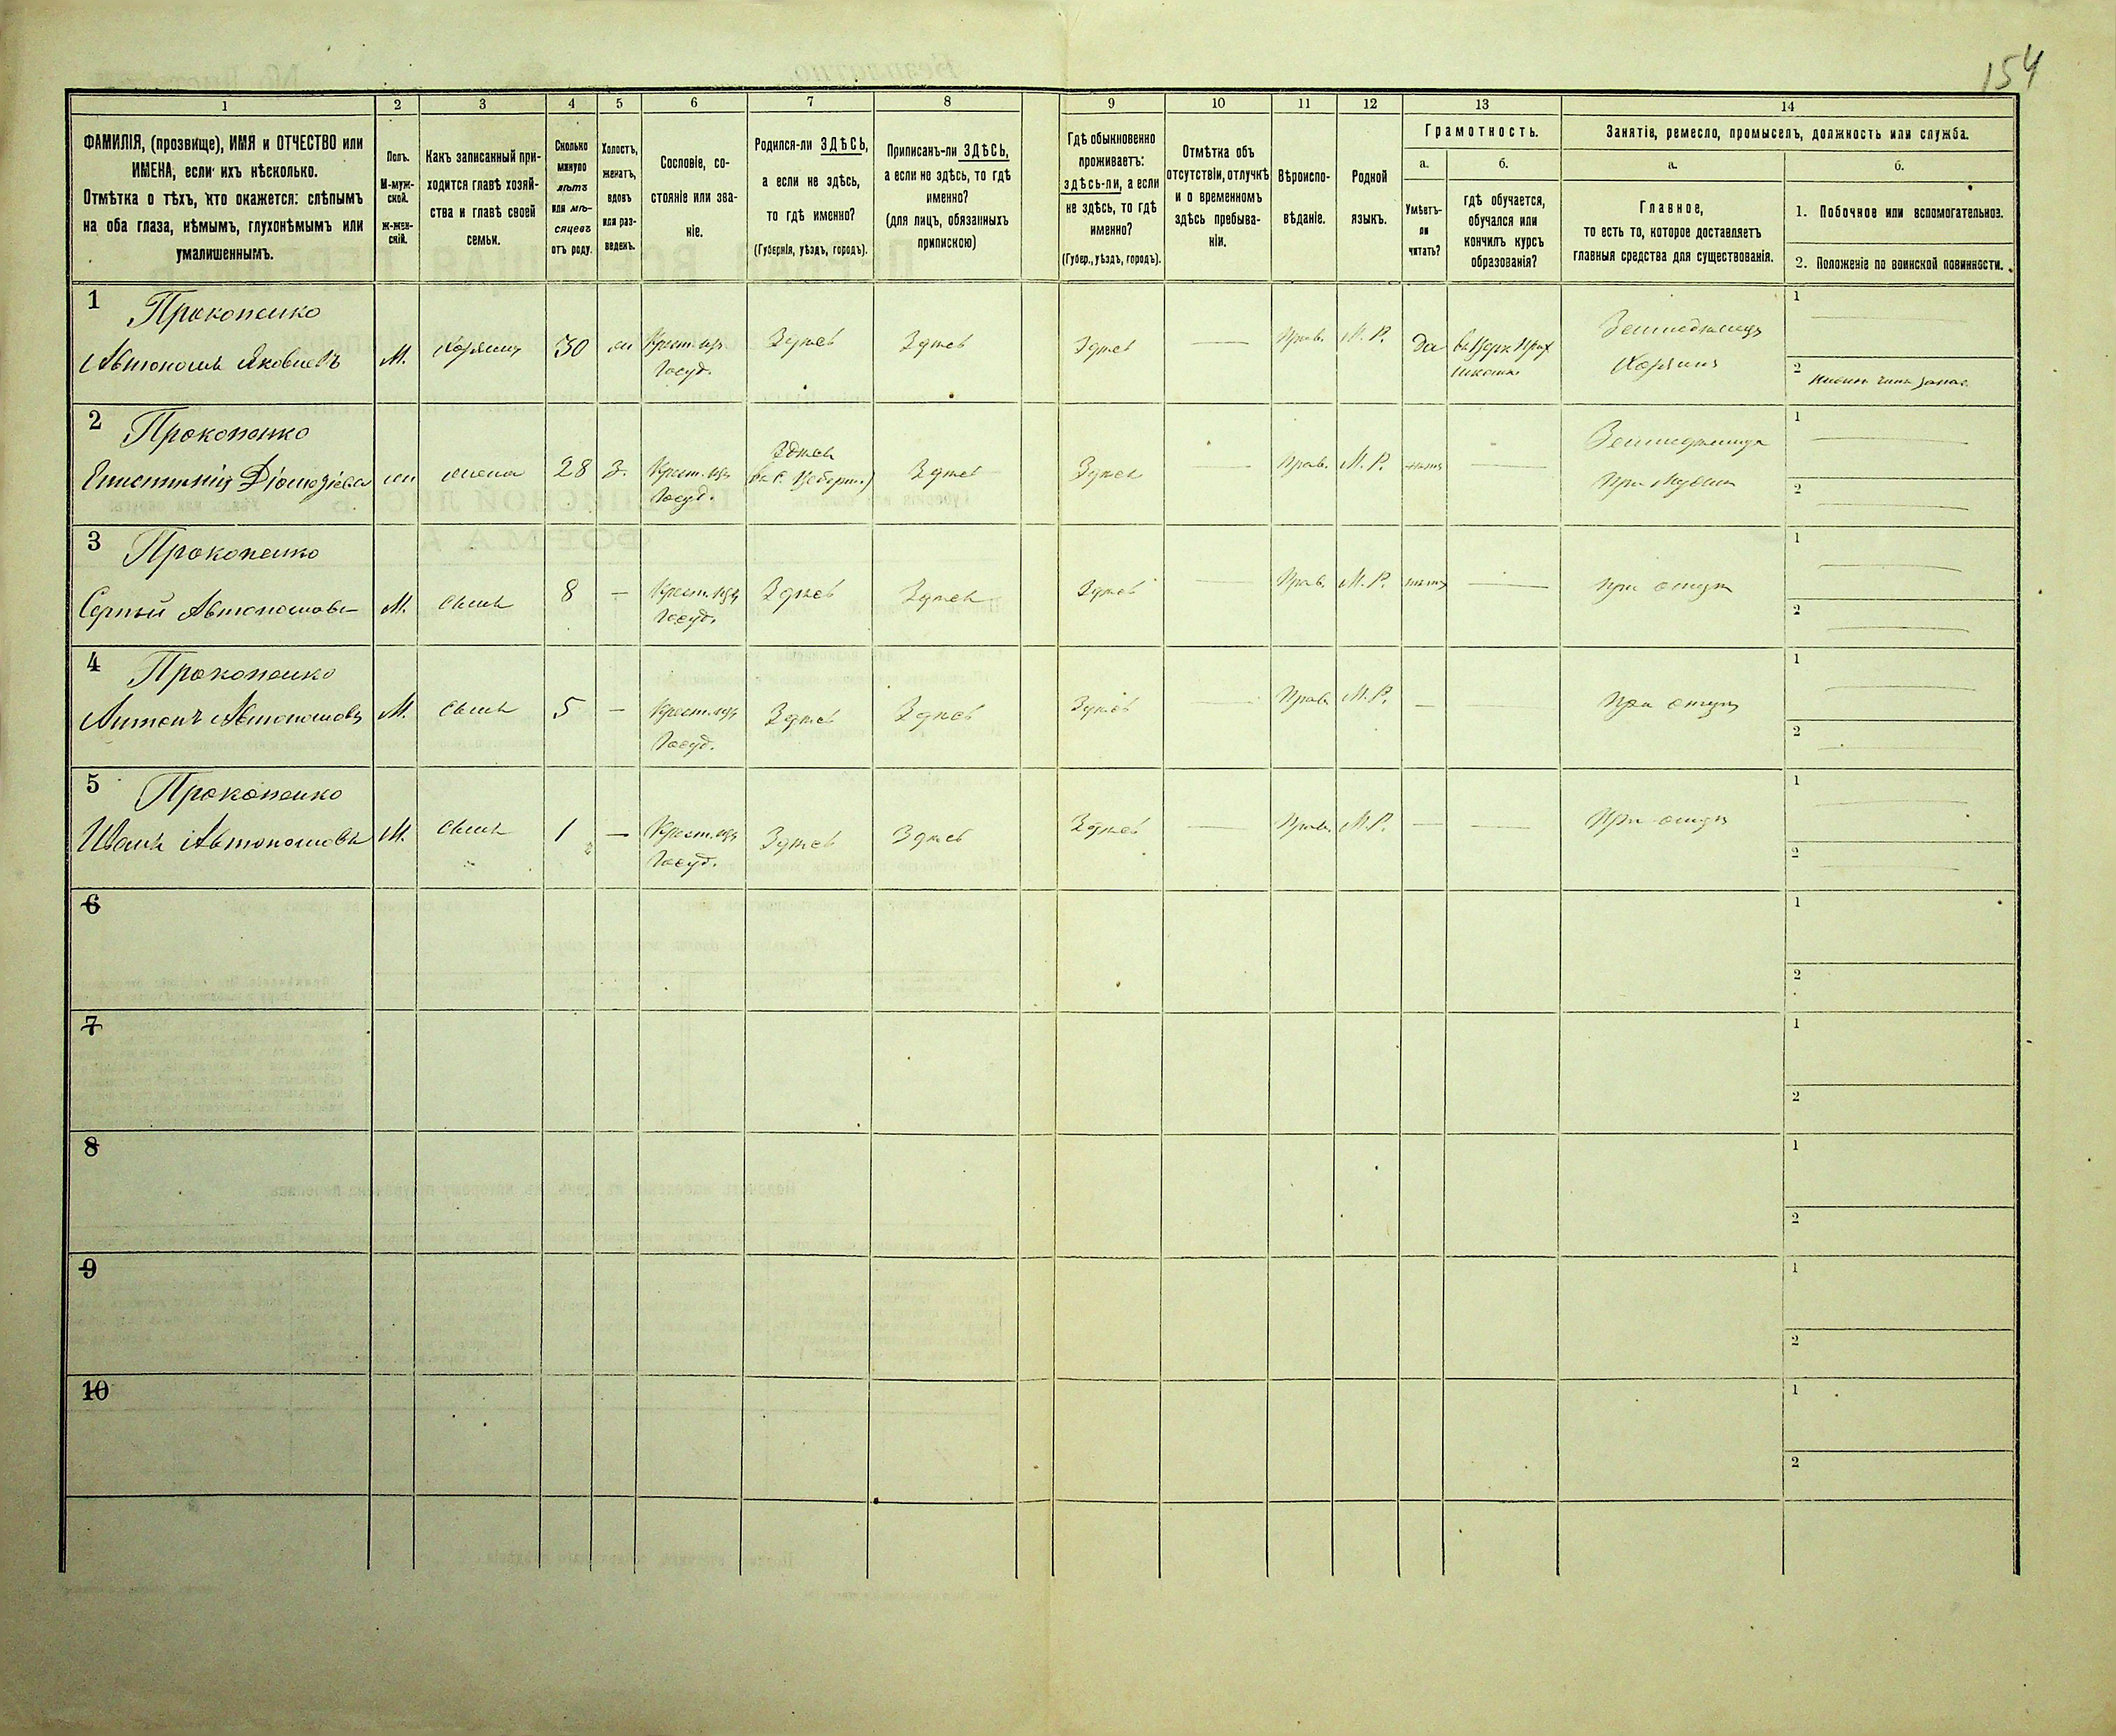 154
1 2 3 4 5 6 7 8 9 10 11 12 13 14
ФАМИЛІЯ, (прозвище), ИМЯ и ОТЧЕСТВО или
ИМЕНА, если ихъ нѣсколько.
Отмѣтка о тѣхъ, кто окажется: слѣпымъ
на оба глаза, нѣмымъ, глухонѣмымъ или
умалишеннымъ.
Полъ.
М-муж-
ской.
ж-жен-
скій.
Какъ записанный при-
ходится главѣ хозяй-
ства и главѣ своей
семьи.
Сколько
минуло
лѣтъ
или мѣ-
сяцевъ
отъ роду.
Холостъ,
женатъ,
вдовъ
или раз-
веденъ.
Сословіе, со-
стояніе или зва-
ніе.
Родился-ли ЗДѢСЬ,
а если не здѣсь,
то гдѣ именно?
(Губернія, уѣздъ, городъ).
Приписанъ-ли ЗДѢСЬ,
а если не здѣсь, то гдѣ
именно?
(для лицъ, обязанныхъ
припискою)
Гдѣ обыкновенно
проживаетъ:
здѣсь-ли, а если
не здѣсь, то гдѣ
именно?
(Губер., уѣздъ, городъ).
Отмѣтка объ
отсутствіи, отлучкѣ
и о временномъ
здѣсь пребыва-
ніи.
Вѣроиспо-
вѣданіе.
Родной
языкъ.
Грамотность.
а.
Умѣетъ-
ли
читать?
б.
гдѣ обучается,
обучался или
кончилъ курсъ
образованія?
Занятіе, ремесло, промыселъ, должность или служба.
а.
Главное,
то есть то, которое доставляетъ
главныя средства для существованія.
б.
1. Побочное или вспомогательное.
2. Положеніе по воинской повинности.
1
Прокопенко
Автономъ Яковлевъ
М.
Хозяинъ
30
Крест. изъ
Госуд.
Здѣсь
Здѣсь
Здѣсь
Прав.
М. Р.
Да
Земледѣлецъ
Хозяинъ
1
2
2
Прокопенко
жена
28
З.
Крест. изъ
Госуд.
Здѣсь
Здѣсь
Здѣсь
Прав.
М. Р.
нѣтъ
При мужѣ
1
2
3
Прокопенко
Сергѣй Автономовъ
М.
сынъ
8
—
Крест. изъ
Госуд.
Здѣсь
Здѣсь
Здѣсь
Прав.
М. Р.
нѣтъ
при отцѣ
1
2
4
Прокопенко
Антонъ Автономовъ
М.
сынъ
5
—
Крест. изъ
Госуд.
Здѣсь
Здѣсь
Здѣсь
Прав.
М. Р.
—
при отцѣ
1
2
5
Прокопенко
Иванъ Автономовъ
М.
сынъ
1
—
Крест. изъ
Госуд.
Здѣсь
Здѣсь
Здѣсь
Прав.
М. Р.
—
При отцѣ
1
2
6
1
2
7
1
2
8
1
2
9
1
2
10
1
2